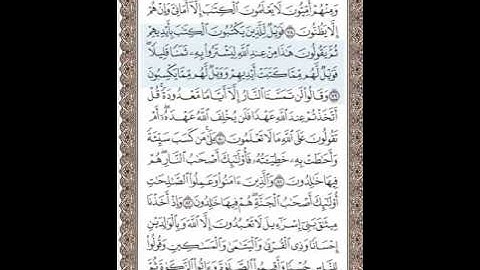 وَمِنْهُمْ أُمِّيُّونَ لَا يَعْلَمُونَ الْكِتَٰبَ إِلَّآ أَمَانِيَّ وَإِنْ هُمْ
إِلَّا يَظُنُّونَ ٧٨ فَوَيْلٌ لِّلَّذِينَ يَكْتُبُونَ الْكِتَٰبَ بِأَيْدِيهِمْ
ثُمَّ يَقُولُونَ هَٰذَا مِنْ عِندِ اللَّهِ لِيَشْتَرُوا۟ بِهِۦ ثَمَنًا قَلِيلًا
فَوَيْلٌ لَّهُم مِّمَّا كَتَبَتْ أَيْدِيهِمْ وَوَيْلٌ لَّهُم مِّمَّا يَكْسِبُونَ
٧٩ وَقَالُوا۟ لَن تَمَسَّنَا النَّارُ إِلَّآ أَيَّامًا مَّعْدُودَةً قُلْ
أَتَّخَذْتُمْ عِندَ اللَّهِ عَهْدًا فَلَن يُخْلِفَ اللَّهُ عَهْدَهُۥٓ أَمْ
تَقُولُونَ عَلَى اللَّهِ مَا لَا تَعْلَمُونَ ٨٠ بَلَىٰ مَن كَسَبَ سَيِّئَةً
وَأَحَٰطَتْ بِهِۦ خَطِيٓـَٔتُهُۥ فَأُو۟لَٰٓئِكَ أَصْحَٰبُ النَّارِ هُمْ
فِيهَا خَٰلِدُونَ ٨١ وَالَّذِينَ ءَامَنُوا۟ وَعَمِلُوا۟ الصَّٰلِحَٰتِ
أُو۟لَٰٓئِكَ أَصْحَٰبُ الْجَنَّةِ هُمْ فِيهَا خَٰلِدُونَ ٨٢ وَإِذْ أَخَذْنَا
مِيثَٰقَ بَنِىٓ إِسْرَٰٓءِيلَ لَا تَعْبُدُونَ إِلَّا اللَّهَ وَبِالْوَٰلِدَيْنِ
إِحْسَانًا وَذِى الْقُرْبَىٰ وَالْيَتَٰمَىٰ وَالْمَسَٰكِينِ وَقُولُوا۟
لِلنَّاسِ حُسْنًا وَأَقِيمُوا۟ الصَّلَوٰةَ وَءَاتُوا۟ الزَّكَوٰةَ ثُمَّ